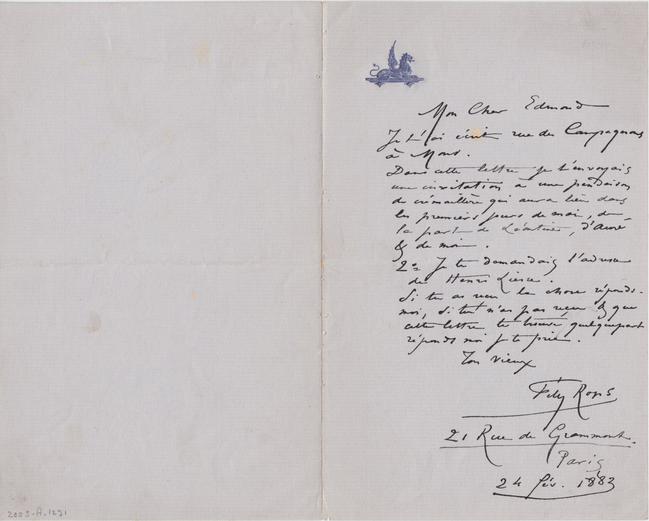 Mon Cher Edmond
Je t'ai écrit rue des Compagnons
à Mons.
Dans cette lettre je t'envoyais
une invitation à une pendaison
de crémaillère qui aura lieu dans
les premiers jours de mai, de
la part de Léontine, d'Auré
& de moi.
2º Je te demandais l'adresse
de Henri Liesse.
Si tu as reçu la chose réponds-
moi, si tu n'as pas reçu & que
cette lettre te trouve quelquepart
réponds moi je te prie.
Ton vieux
Fély Rops
21 Rue de Grammont.
Paris
24 fév. 1883
2003-A.1231